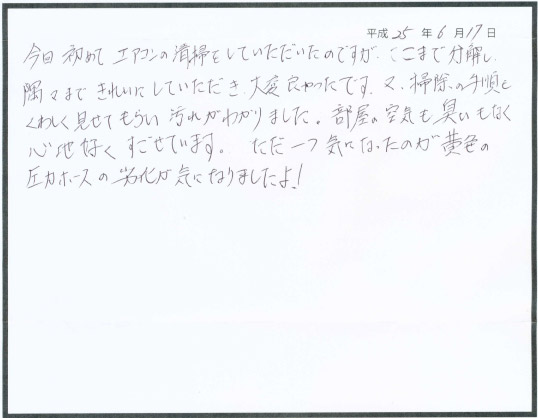 平成25年6月17日
今日初めてエアコンの清掃をしていただいたのですが、ここまで分解し
隅々まできれいにしていただき、大変良かったです。又、掃除の手順も
くわしく見せてもらい汚れがわかりました。部屋の空気も臭いもなく
心地好くすごせています。ただ一つ気になったのが黄色の
圧力ホースの劣化が気になりましたよ!